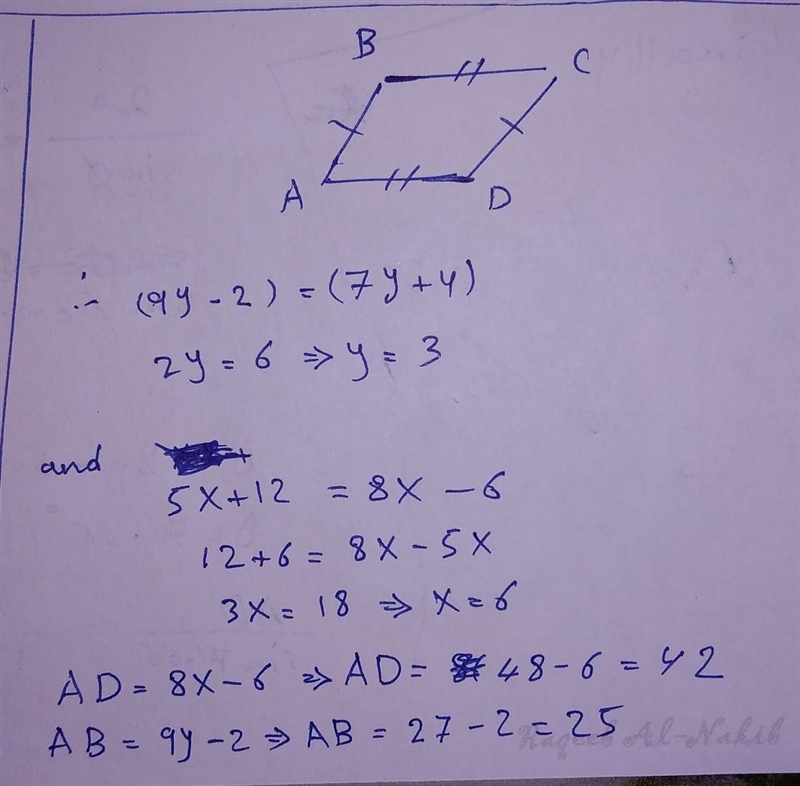 B
C
A
D
∴ (9y - 2) = (7y + 4)
2y = 6 ⇒ y = 3
and
5x + 12 = 8x - 6
12 + 6 = 8x - 5x
3x = 18 ⇒ x = 6
AD = 8x - 6 ⇒ AD = 48 - 6 = 42
AB = 9y - 2 ⇒ AB = 27 - 2 = 25
Raqeeb Al-Nakib